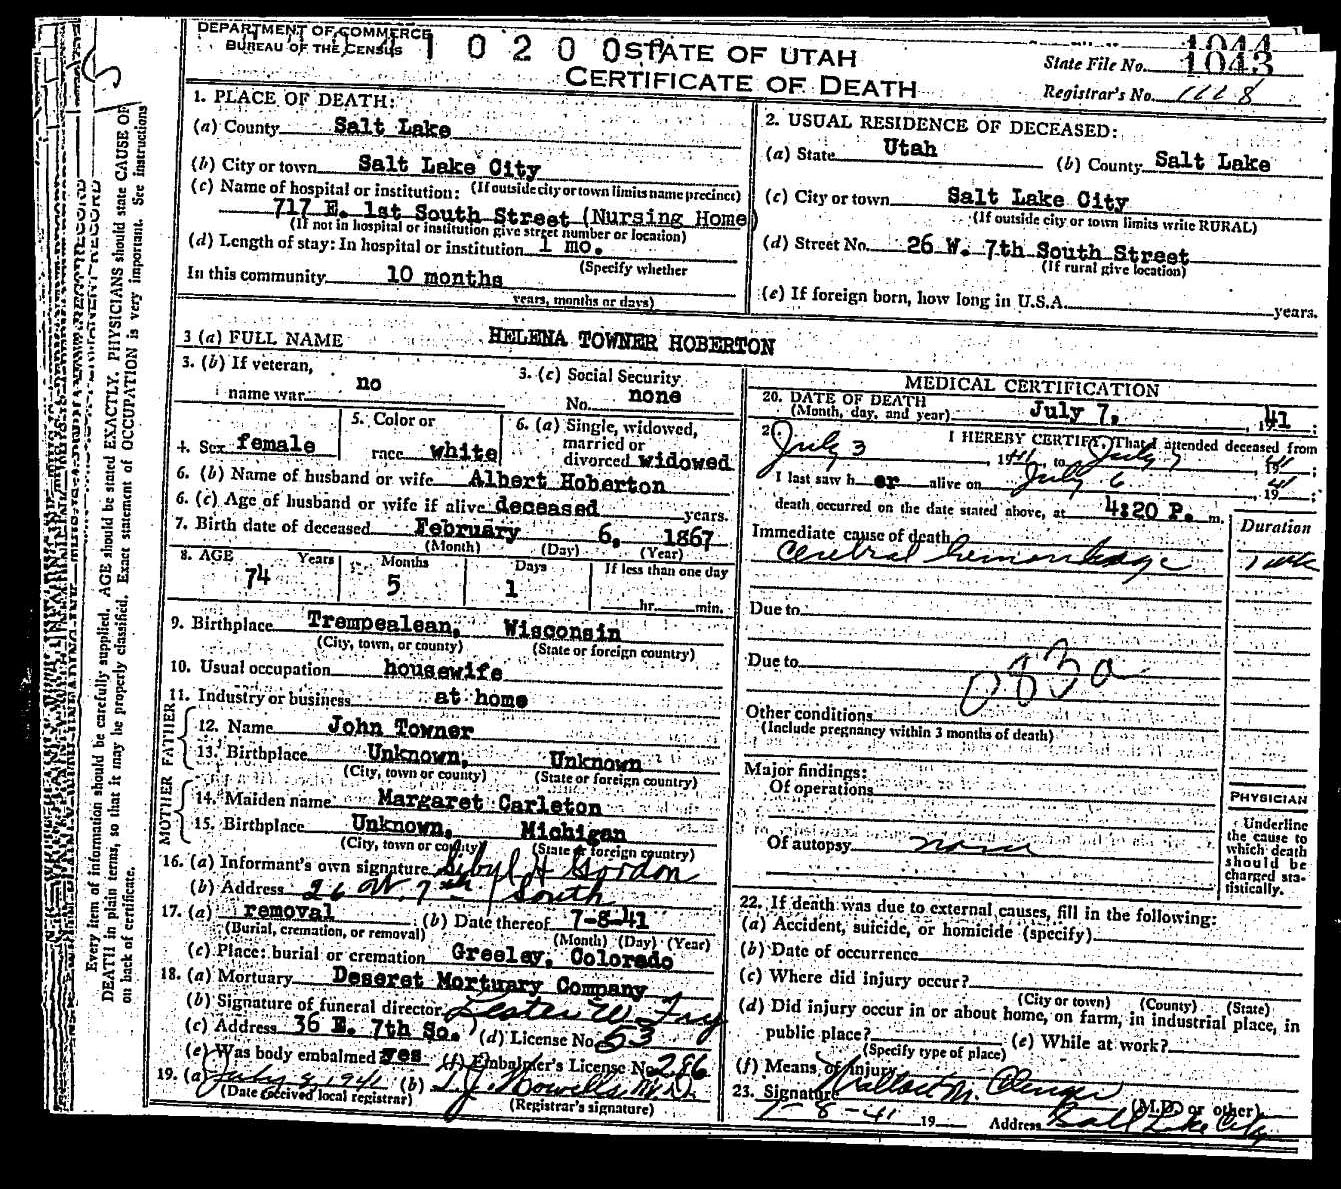 DEPARTMENT OF COMMERCE
BUREAU OF THE CENSUS
1 0 2 0 0
STATE OF UTAH
CERTIFICATE OF DEATH
1044
State File No. 1043
Registrar's No. 1118
Every item of information should be carefully supplied. AGE should be stated EXACTLY. PHYSICIANS should state CAUSE OF
DEATH in plain terms, so that it may be properly classified. Exact statement of OCCUPATION is very important. See instructions
on back of certificate.
1. PLACE OF DEATH:
(a) County Salt Lake
(b) City or town Salt Lake City
(If outside city or town limits name precinct)
(c) Name of hospital or institution:
717 E. 1st South Street (Nursing Home)
(If not in hospital or institution give street number or location)
(d) Length of stay: In hospital or institution 1 mo.
(Specify whether
In this community 10 months
years, months or days)
2. USUAL RESIDENCE OF DECEASED:
(a) State Utah (b) County Salt Lake
(c) City or town Salt Lake City
(If outside city or town limits write RURAL)
(d) Street No. 26 W. 7th South Street
(If rural give location)
(e) If foreign born, how long in U.S.A. years.
3 (a) FULL NAME HELENA TOWNER HOBERTON
3. (b) If veteran,
name war no
3. (c) Social Security
No. none
4. Sex female
5. Color or
race white
6. (a) Single, widowed,
married or
divorced widowed
6. (b) Name of husband or wife Albert Hoberton
6. (c) Age of husband or wife if alive deceased years.
7. Birth date of deceased February 6, 1867
(Month) (Day) (Year)
8. AGE Years Months Days If less than one day
74 5 1 hr. min.
9. Birthplace Trempealean, Wisconsin
(City, town, or county) (State or foreign country)
10. Usual occupation housewife
11. Industry or business at home
FATHER
12. Name John Towner
13. Birthplace Unknown, Unknown
(City, town or county) (State or foreign country)
MOTHER
14. Maiden name Margaret Carleton
15. Birthplace Unknown, Michigan
(City, town or county) (State or foreign country)
16. (a) Informant's own signature Sibyl H Gordon
(b) Address 26 W. 7th South
17. (a) removal (b) Date thereof 7-8-41
(Burial, cremation, or removal) (Month) (Day) (Year)
(c) Place: burial or cremation Greeley, Colorado
18. (a) Mortuary Deseret Mortuary Company
(b) Signature of funeral director Lester W. Fry
(c) Address 36 E. 7th So. (d) License No. 53
(e) Was body embalmed yes (f) Embalmer's License No. 286
19. (a) July 8, 1941 (b) L.J. Howells M.D.
(Date received local registrar) (Registrar's signature)
MEDICAL CERTIFICATION
20. DATE OF DEATH
(Month, day, and year) July 7, 1941
2 I HEREBY CERTIFY, That I attended deceased from
July 3 1941, to July 7 1941;
I last saw her alive on July 6, 1941;
death occurred on the date stated above, at 4:20 P. m.
Immediate cause of death Duration
Cerebral hemorrhage 1 wk
Due to
Due to
083a
Other conditions
(Include pregnancy within 3 months of death)
Major findings:
Of operations
Of autopsy none
PHYSICIAN
Underline
the cause to
which death
should be
charged sta-
tistically.
22. If death was due to external causes, fill in the following:
(a) Accident, suicide, or homicide (specify)
(b) Date of occurrence
(c) Where did injury occur?
(City or town) (County) (State)
(d) Did injury occur in or about home, on farm, in industrial place, in
public place? (e) While at work?
(Specify type of place)
(f) Means of injury
23. Signature (M.D. or other)
7-8-41 19 Address Salt Lake City